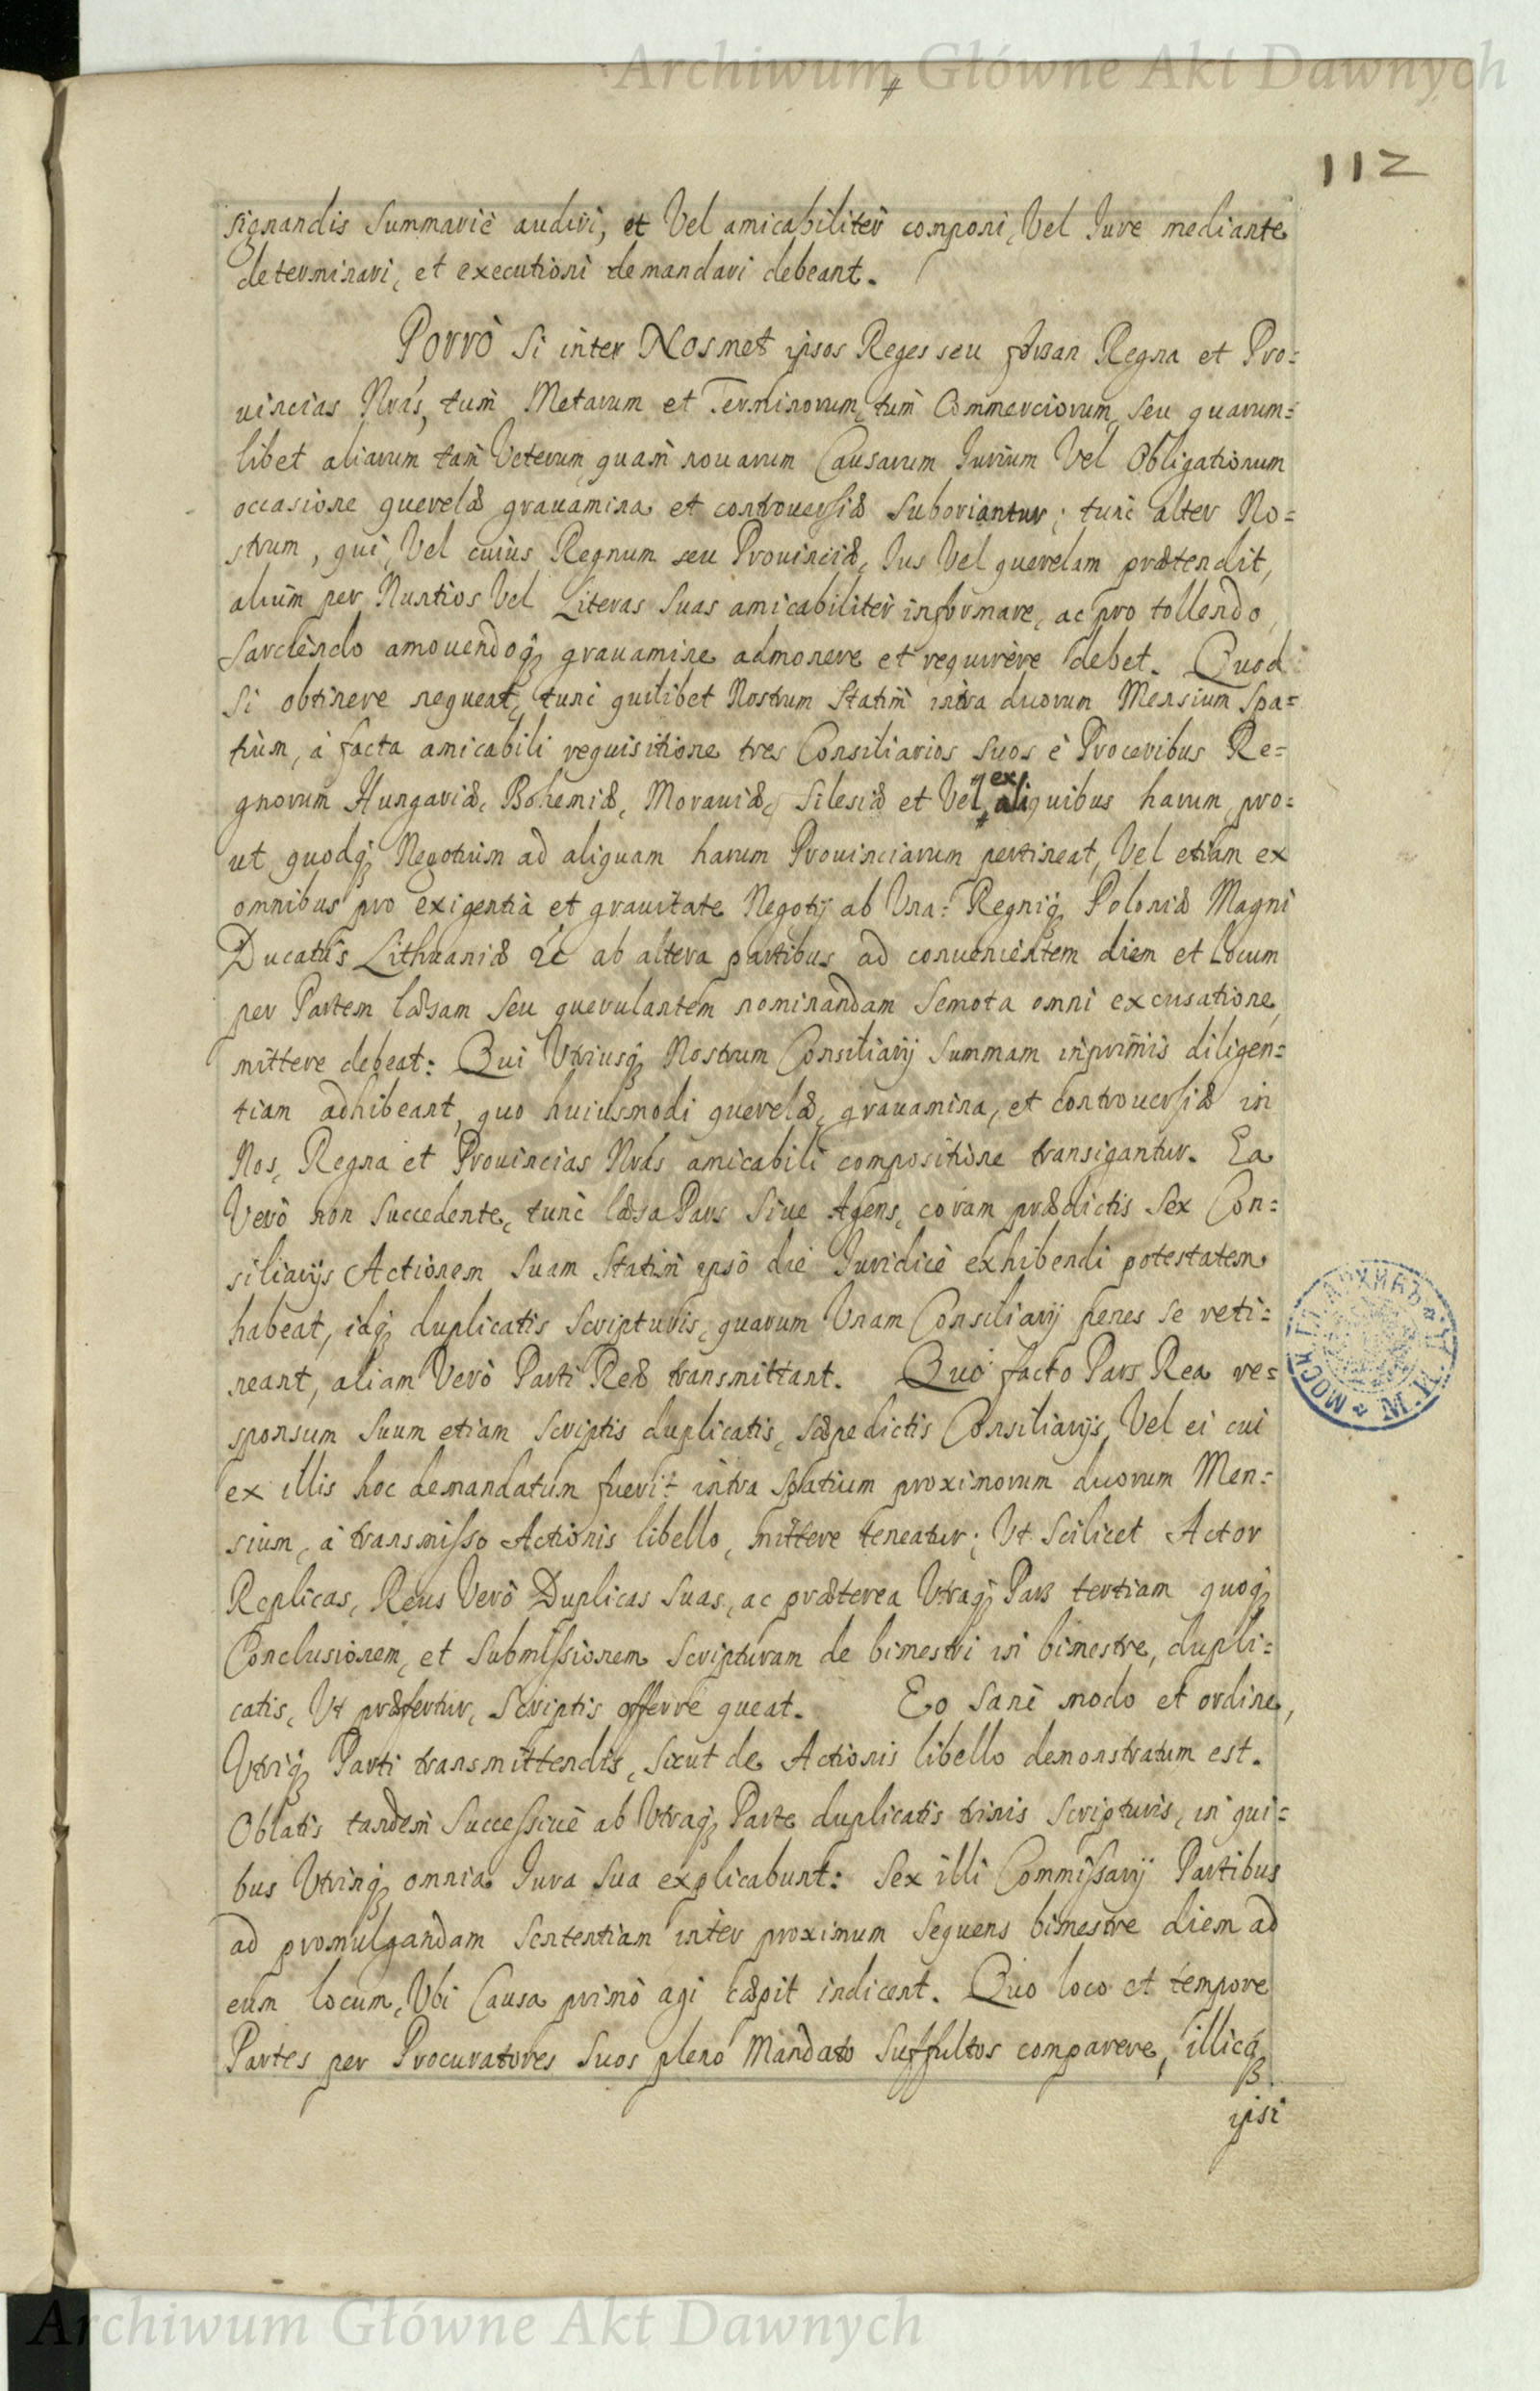 Archiwum Główne Akt Dawnych
#
112
signandis Summariè audiri, et Vel amicabiliter componi, Vel Jure mediante
determinari, et executioni demandari debeant.
Porrò Si inter Nosmet ipsos Reges seu forsan Regna et Pro=
uincias Nras, tum Metarum et Terminorum, tum Commerciorum, seu quarum=
libet aliarum tam Veterum quam nouarum Causarum Jurium Vel Obligationum
occasione querelæ grauamina et controuersiæ Suboriantur; tunc alter No=
strum, qui, Vel cuius Regnum seu Prouinciæ, Jus Vel querelam prætendit,
alium per Nuntios Vel Literas Suas amicabiliter informare, ac pro tollendo,
Sarciendo amouendoq3 grauamine admonere et requirere debet. Quod
Si obtinere nequeat, tunc quilibet Nostrum Statim intra duorum Mensium Spa=
tium, à facta amicabili requisitione tres Consiliarios Suos è Proceribus Re=
gnorum Hungariæ, Bohemiæ, Morauiæ, Silesiæ et Vel ex aliquibus harum, pro=
ut quodq3 Negotium ad aliquam harum Prouinciarum pertineat, Vel etiam ex
omnibus pro exigentia et grauitate Negotij ab Vna: Regniq3 Poloniæ Magni
Ducatus Lithuaniæ &c ab altera partibus ad conuenientem diem et Locum
per Partem læsam Seu querulantem nominandam Semota omni excusatione,
mittere debeat: Qui Vtriusq3 Nostrum Consiliarij Summam inprimis diligen=
tiam adhibeant, quo huiusmodi querelæ, grauamina, et controuersiæ in
Nos, Regna et Prouincias Nras amicabili compositione transigantur. Ea
Verò non Succedente, tunc læsa Pars Siue Agens, coram prædictis Sex Con=
siliarijs Actionem Suam Statim ipso die Juridicè exhibendi potestatem
habeat, idq3 duplicatis Scripturis, quarum Vnam Consiliarij penes se reti=
neant, aliam Verò Parti Reæ transmittant. Quo facto Pars Rea re=
sponsum Suum etiam Scriptis duplicatis, Sæpedictis Consiliarijs, Vel ei cui
ex illis hoc demandatum fuerit intra Spatium proximorum duorum Men=
sium, à transmisso Actionis libello, mittere teneatur; Vt Scilicet Actor
Replicas, Reus Verò Duplicas Suas, ac præterea Vtraq3 Pars tertiam quoq3
Conclusionem, et Submissionem Scripturam de bimestri in bimestre, dupli=
catis, Vt præfertur, Scriptis offerre queat. Eo Sanè modo et ordine,
Vtriq3 Parti transmittendis, Sicut de Actionis libello demonstratum est.
Oblatis tandem Successiuè ab Vtraq3 Parte duplicatis trinis Scripturis, in qui=
bus Vtrinq3 omnia Jura Sua explicabunt: Sex illi Commissarij Partibus
ad promulgandam Sententiam inter proximum Sequens bimestre diem ad
eum locum, Vbi Causa primò agi cæpit indicent. Quo loco et tempore
Partes per Procuratores Suos pleno Mandato Suffultos comparere, illicq3
ipsi
Archiwum Główne Akt Dawnych